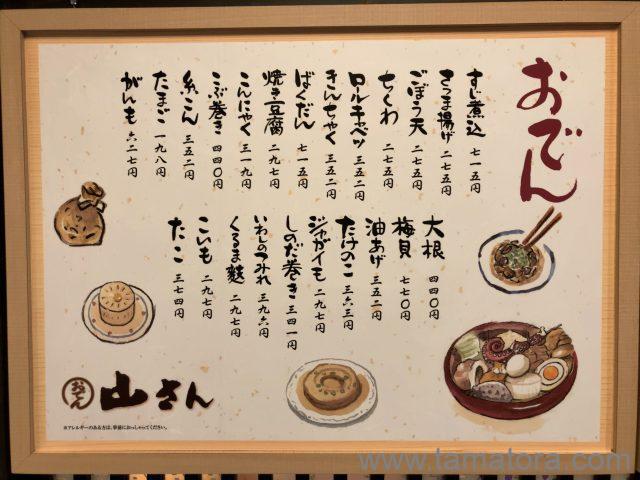 おでん
すじ煮込 七一五円
さつま揚げ 二七五円
ごぼう天 二七五円
ちくわ 二七五円
ロールキャベツ 三五二円
きんちゃく 三五二円
ばくだん 七一五円
焼き豆腐 二九七円
こんにゃく 三一九円
こぶ巻き 四四〇円
糸こん 三五二円
たまご 一九八円
がんも 六二七円
大根 四四〇円
梅貝 七七〇円
油あげ 三五二円
たけのこ 三六三円
ジャガイモ 二九七円
しのだ巻き 三四一円
いわしのつみれ 三九六円
くるま麩 二九七円
こいも 二九七円
たこ 三七四円
おでん 山さん
※アレルギーのある方は、事前におっしゃってください。
www.tamatora.com